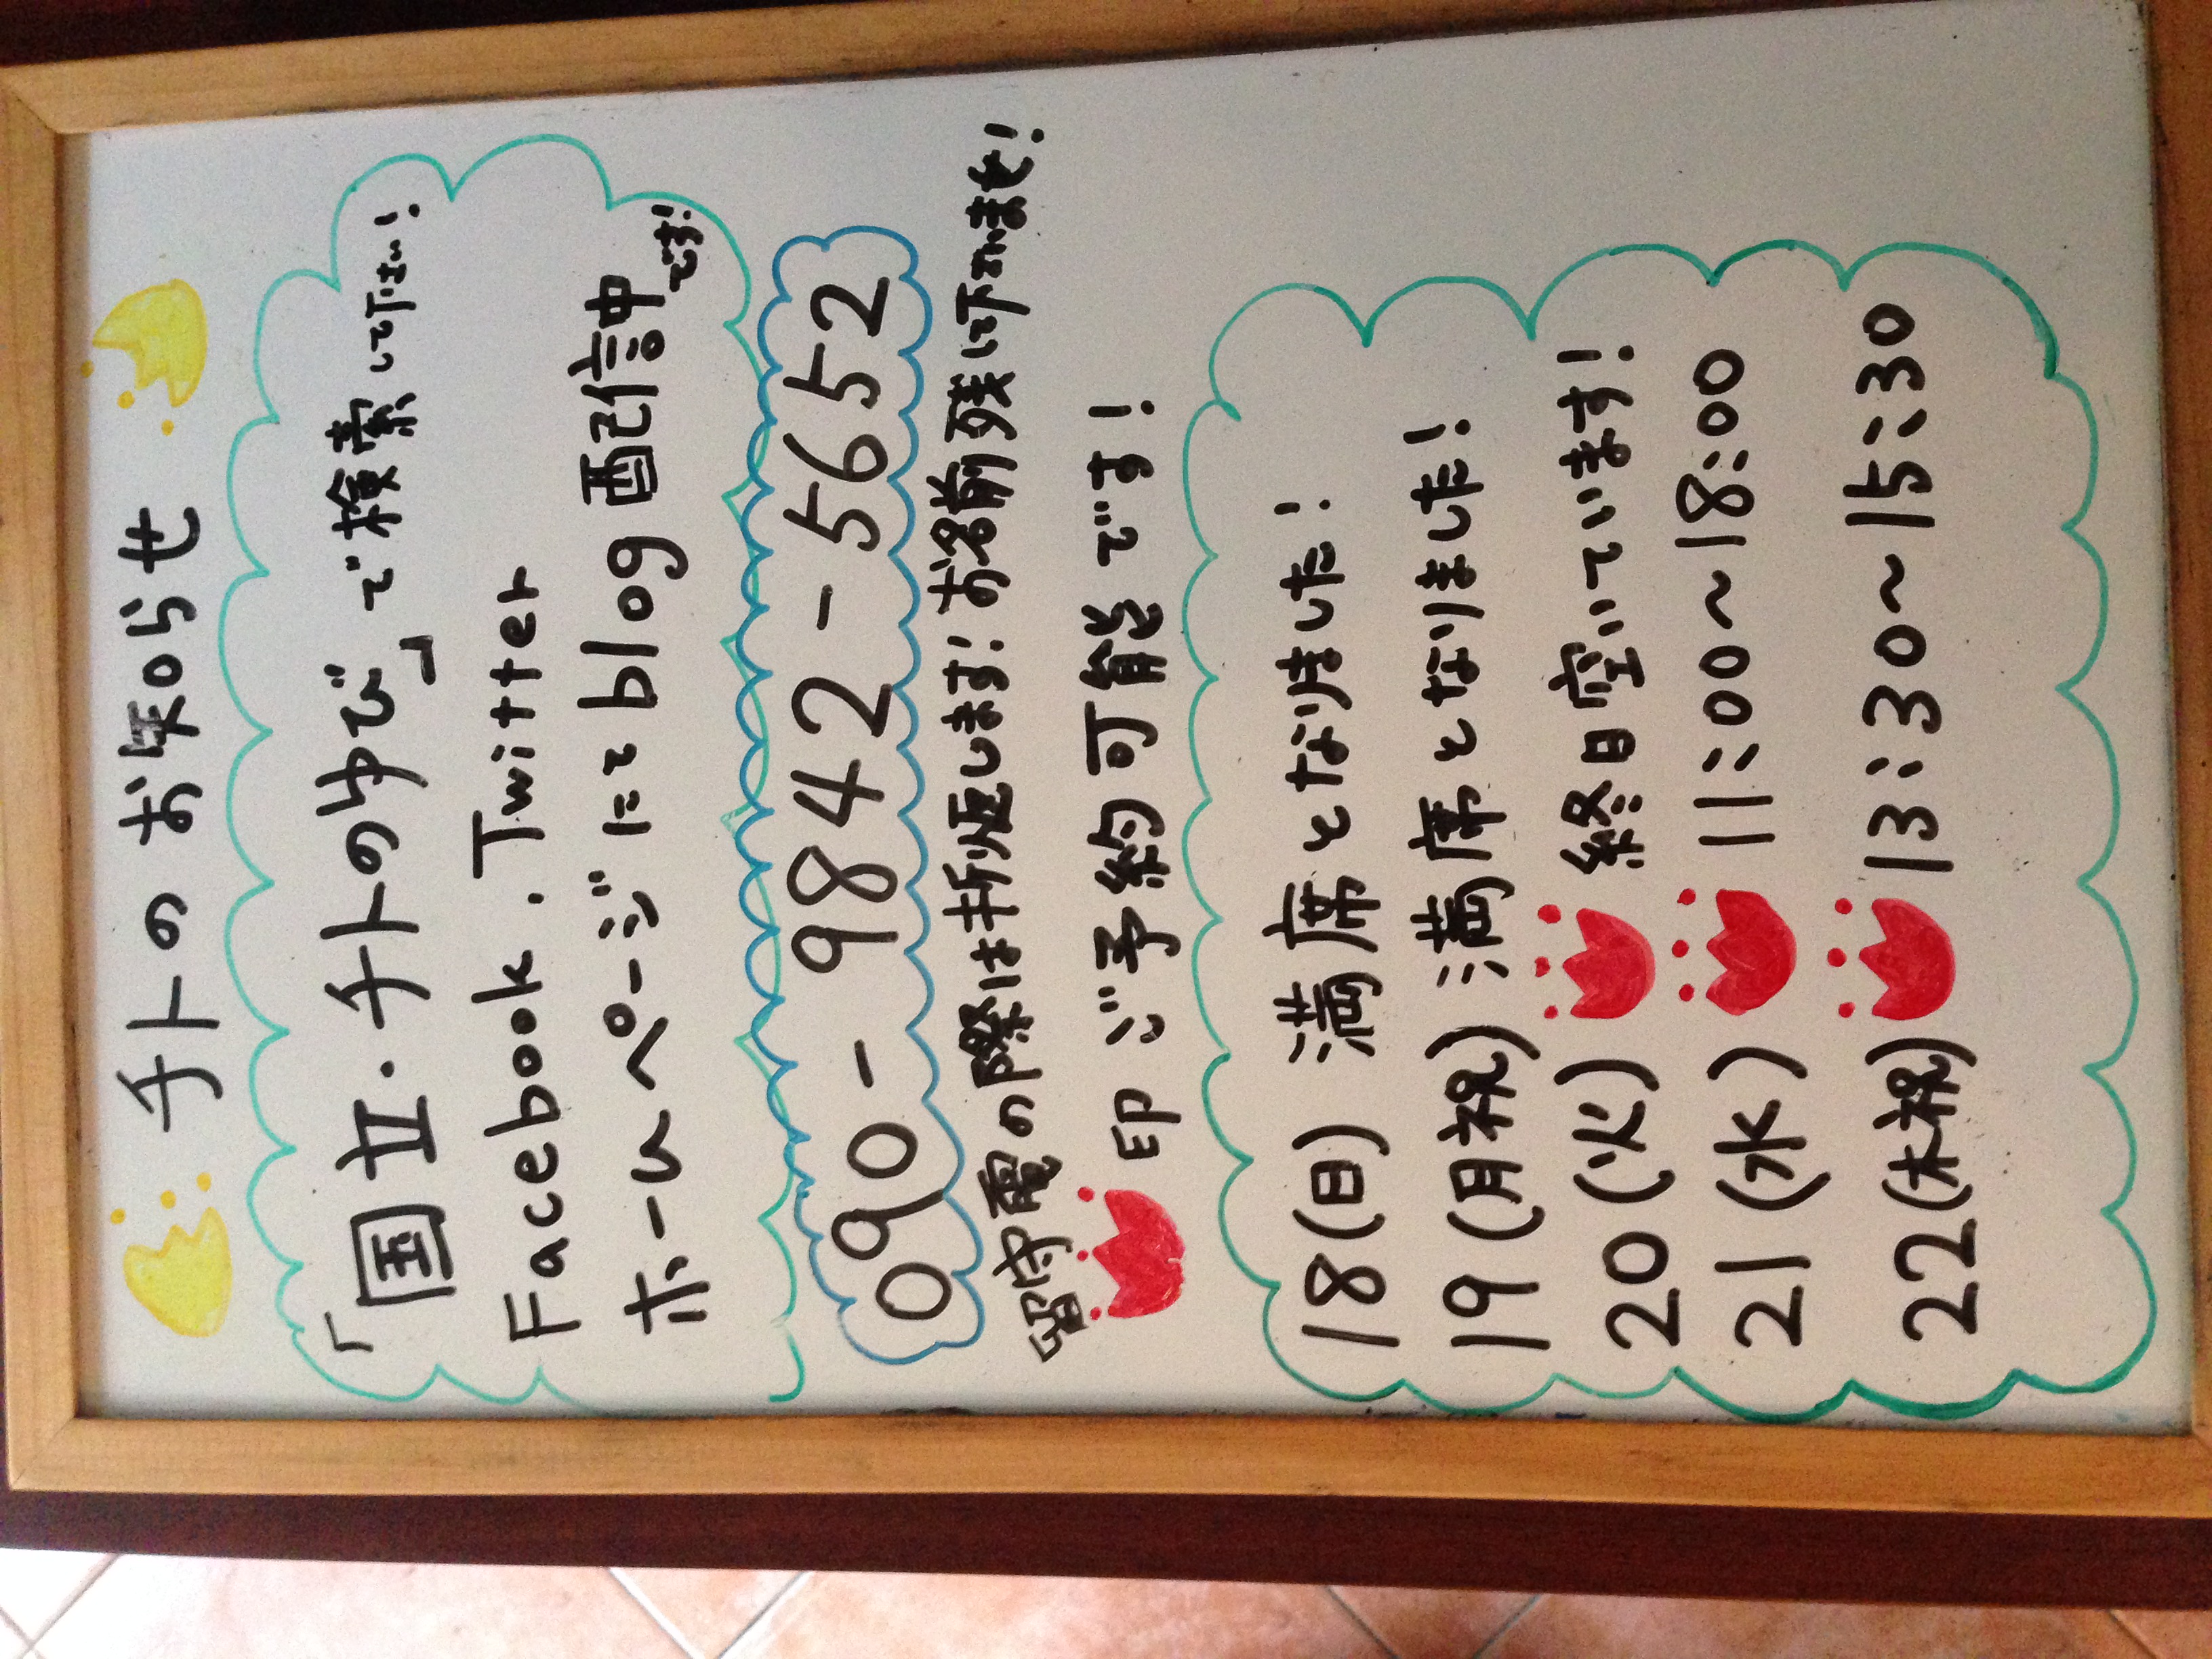 チトのお知らせ
「国立・チトのゆび」で検索して下さい!
Facebook.Twitter
ホームペ-ジにてblog配信中です!
090-9842-5652
留守電の際は折り返します!お名前残して下さいませ!
印ご予約可能です!
18(日)満席となりました!
19(月祝)満席となりました!
20(火)終日空いています!
21(水)11:00~18:00
22(木祝)13:30~15:30